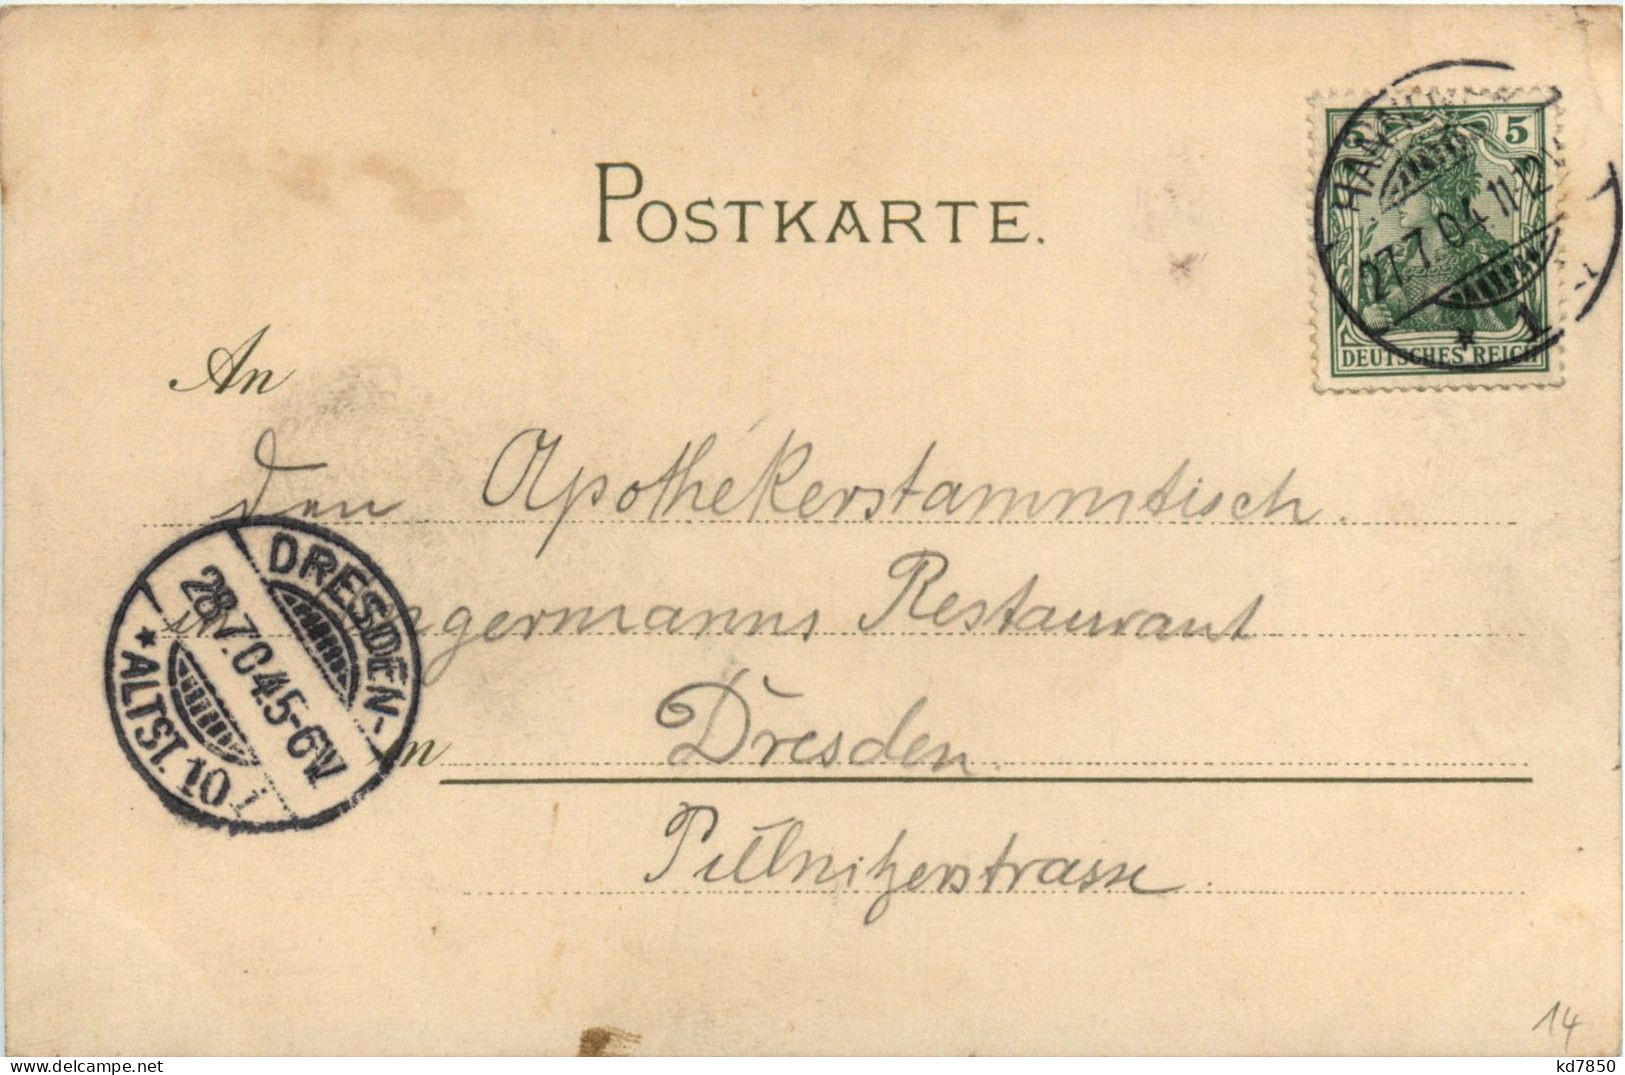 POSTKARTE.
5
27.7.04 11-12
* 1
DEUTSCHES REICH
An
den Apothekerstammtisch.
Restaurant
DRESDEN-
28.7.04.5-6V.
* ALTST. 10
in Dresden.
Pillnitzerstrasse.
14
kd7850